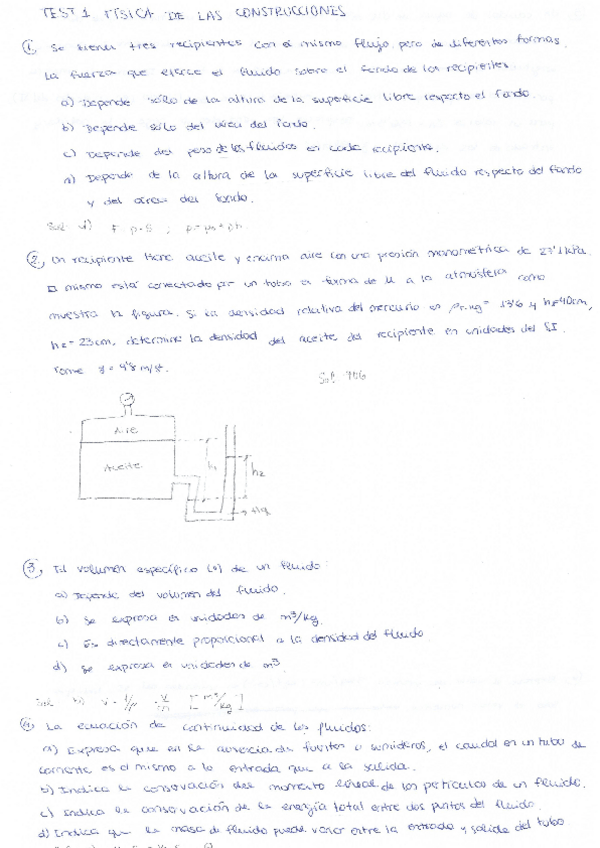 TEST 1 FÍSICA DE LAS CONSTRUCCIONES
① Se tienen tres recipientes con el mismo flujo, pero de diferentes formas.
La fuerza que ejerce el fluido sobre el fondo de los recipientes
a) Depende sólo de la altura de la superficie libre respecto el fondo.
b) Depende sólo del área del fondo.
c) Depende del peso de los fluidos en cada recipiente.
d) Depende de la altura de la superficie libre del fluido respecto del fondo
y del área del fondo.
Sol: d) F = p·S ;
② Un recipiente tiene aceite y encima aire con una presión manométrica de 23'1 kPa.
El mismo está conectado por un tubo en forma de U a la atmósfera como
muestra la figura. Si la densidad relativa del mercurio es ρr,Hg = 13'6 y h1=40cm,
h2 = 23cm, determine la densidad del aceite del recipiente en unidades del SI.
Tome g = 9'8 m/s².
Sol: 906
Aire
Aceite
h1
h2
Hg
③ El volumen específico (v) de un fluido:
a) Depende del volumen del fluido.
b) Se expresa en unidades de m³/kg
c) Es directamente proporcional a la densidad del fluido
d) Se expresa en unidades de m³
Sol: b) v = 1/ρ = V/m [m³/kg]
④ La ecuación de continuidad de los fluidos:
a) Expresa que en la ausencia de fuentes o sumideros, el caudal en un tubo de
corriente es el mismo a la entrada que a la salida.
b) Indica la conservación del momento lineal de las partículas de un fluido.
c) Indica la conservación de la energía total entre dos puntos del fluido.
d) Indica que la masa de fluido puede variar entre la entrada y salida del tubo